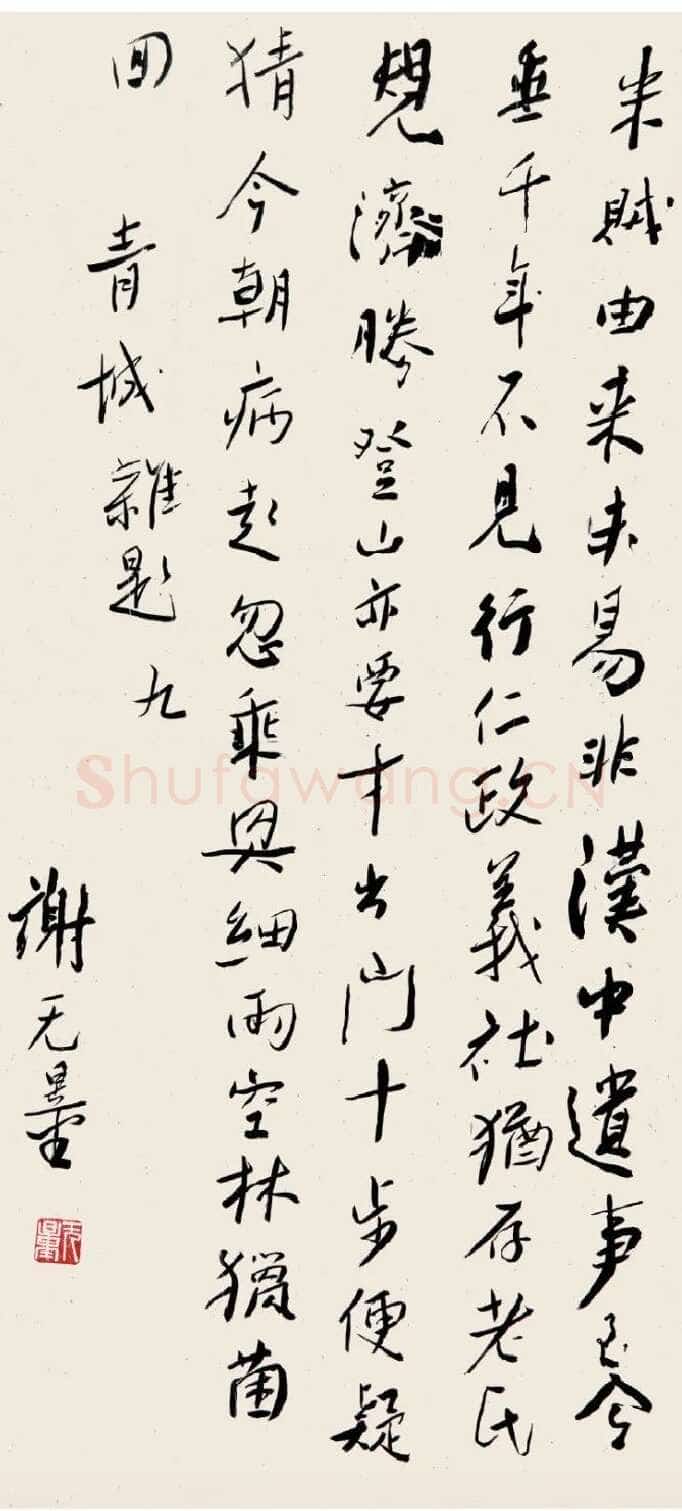 米賊由来未易非漢中遺事至今
垂千年不見行仁政義社猶存老氏
規濟勝登山亦要才出門十步便疑
猜今朝病起忽乘興細雨空林獵菌
回
青城雜題九
謝无量
无量
Shufawang.CN